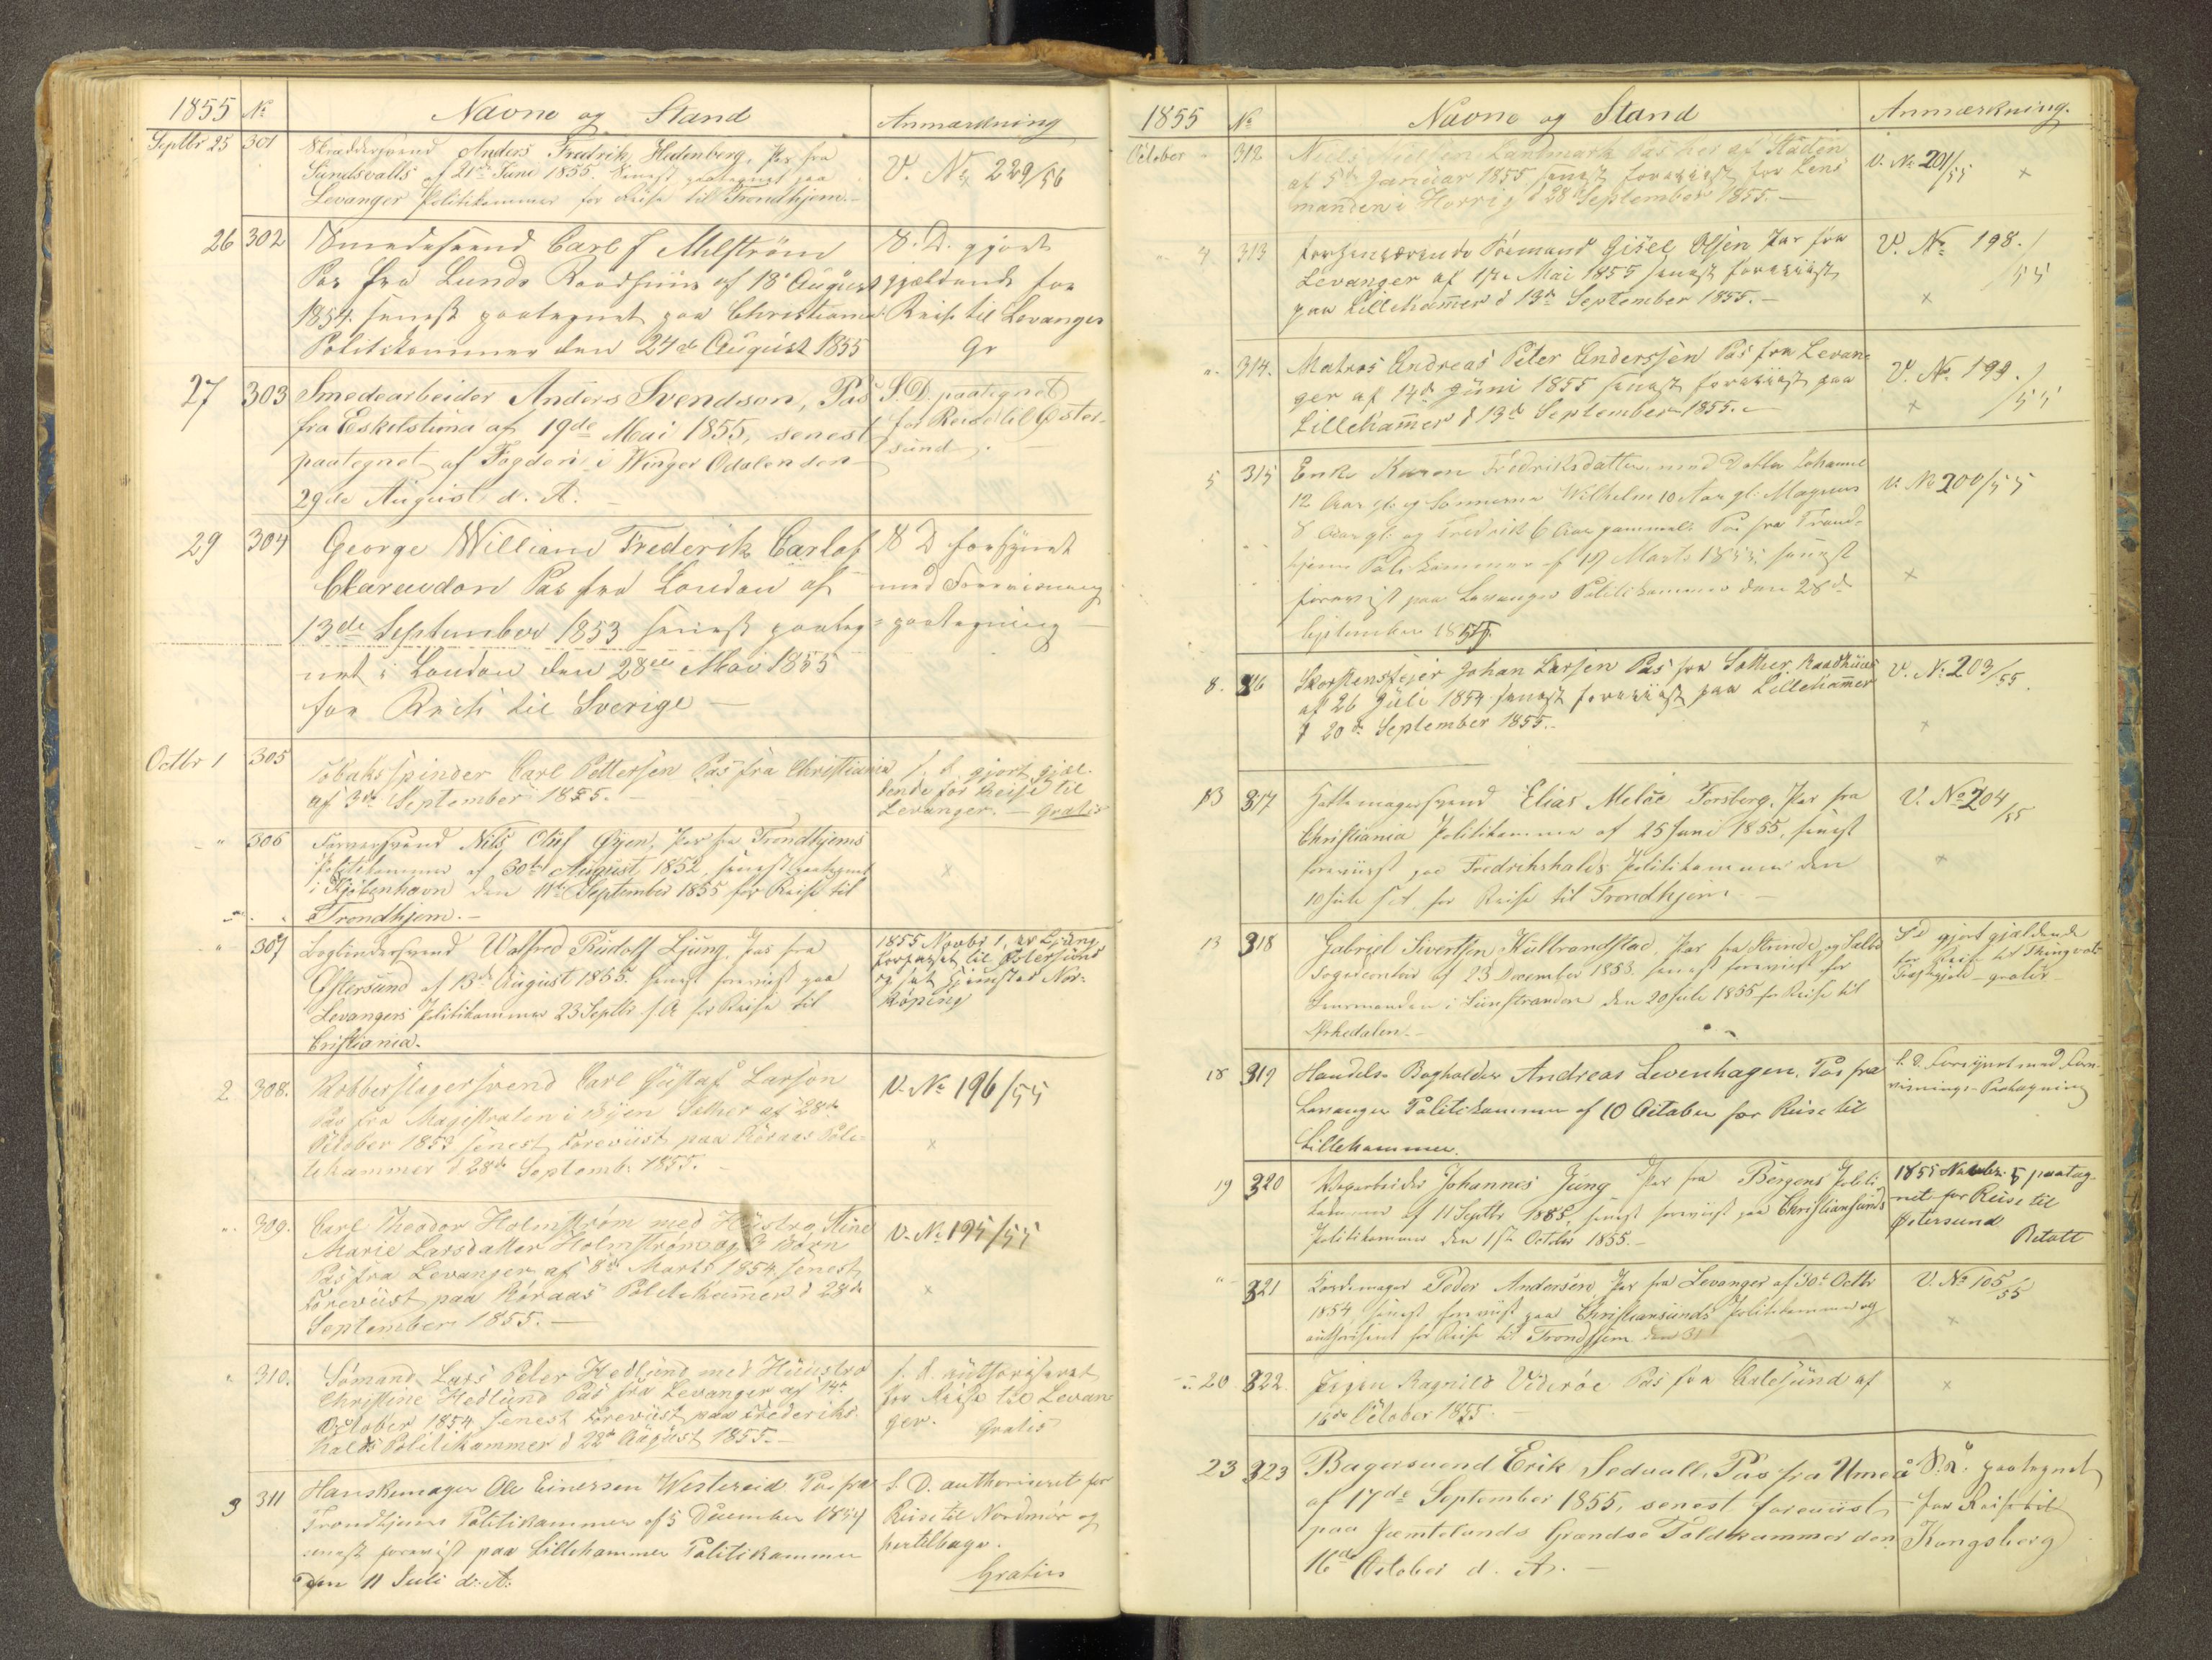 1855 No Navne og Stand Anmærkning
Septbr 25 301 Skræddersvend Anders Fredrik Hedenberg, Pas fra
Sundsvalls af 21de Juni 1855. Senest paategnet paa
Levanger Politikammer for Reise til Trondhjem.—
V. No 229/56
26 302 Smedesvend Carl J Ahlström
Pas fra Lunds Raadhuus af 18de August
1854. senest paategnet paa Christiania
Politikammer den 24de August 1855
S. D. gjort
gjældende for
Reise til Levanger
Gr
27 303 Smedearbeider Anders Svendson, Pas
fra Eskilstuna af 19de Mai 1855, senest
paategnet af Fogden i Winger Odalen den
29de August d. A.
S. D. paategnet
for Reise til Øster-
sund.
29 304 George William Frederik Carlof
Clarendon Pas fra London af
13de September 1853 senest paateg-
net i London den 28de Mai 1855
for Reise til Sverige —
S D forsynet
med Forevisnings
= paategning —
Octbr 1 305 Tobaksspinder Carl Pettersen Pas fra Christiania
af 3de September 1855. —
S. d. gjort gjæl-
dende for Reise til
Levanger. — Gratis
" 306 Farversvend Nils Oluf Øyen, Pas fra Trondhjems
Politikammer af 30te August 1852, senest paategnet
i Kjöbenhavn den 11te September 1855 for Reise til
Trondhjem.—
x
" 307 Bogbindersvend Walfred Rudolf Ljung, Pas fra
Østersund af 13de August 1855. senest foreviist paa
Levangers Politikammer 23 Septbr. s A for Reise til
Cristiania.
1855 Novbr 1, er Ljung
forpasset til Østersund
og sit Hjemsted Nor-
köping
2 308. Kobberslagersvend Carl Gustaf Larson
Pas fra Magistraten i Byen Säther af 28de
October 1853 senest foreviist paa Röraas Poli-
tikammer d 28de Septemb. 1855.
V. No 196/55
x
" 309. Carl Theodor Holmstrøm med Hustro Stine
Marie Larsdatter Holmstrøm og 3 Börn
Pas fra Levanger af 8de Marts 1854. senest
Foreviist paa Röraas Politikammer d 28de
September 1855. —
V. No 195/55
x
" 310. Sömand Lars Peter Hedlund med Huustro
Christine Hedlund Pas fra Levanger af 14de
October 1854 senest Foreviist paa Frederiks-
halds Politikammer d 22de August 1855.—
S. d. authoriseret
for Reise til Levan
ger. Gratis
3 311 Hanskemager Ole Einersen Westereid. Pas fra
Trondhjems Politikammer af 5 December 1854
senest forevist paa Lillehammer Politikammer
den 11 Juli d: A:
S. D. authoriseret for
Reise til Nordmør og
hertilbage.
Gratis
1855 No Navne og Stand Anmærkning.
October " 312 Niels Nielsen Landmark Pas her af Staden
af 5te Januar 1855 senest foreviist for Lens
manden i Horrig d 28de September 1855.—
V. No 201/55
x
" 4 313 Sømand Gisel Olsen Pas fra
Levanger af 17de Mai 1855 senest foreviist
paa Lillehammer d 13de September 1855.—
V. No 198./55
x
". 314. Matros Andreas Peter Anderssen Pas fra Levan-
ger af 14de Juni 1855 senest foreviist paa
Lillehammer d 13de September 1855.—
V. No 199./55
x
5 315 Enke Karen Fredriksdatter med Datter Johanne
12 Aar gl. og Sønnerne Wilhelm 10 Aar gl. Magnus
8 Aar gl. og Fredrik 6 Aar gammel. Pas fra Trond-
hjems Politikammer af 17 Marts 1855, senest
forevist paa Levanger Politikammer den 28de
September 1855.
V. No 200/55
x
8. 316 Skorstensfeier Johan Larsen Pas fra Säther Raadhuus
af 26 Juli 1854 senest foreviist paa Lillehammer
d 20de September 1855.—
V. No 203/55.
x
13 317 Hattemagersvend Elias Forsberg, Pas fra
Christiania Politikammer af 25 Juni 1855, senest
foreviist paa Fredrikshalds Politikammer den
10 Juli s A. for Reise til Trondhjem. —
V. No 204/55
x
13 318 Gabriel Sivertsen Hulbrandstad, Pas fra Strinde og Selbo
Fogdecontor af 23 November 1853. senest foreviist for
Lensmanden i Sunstranden den 20 Juli 1855 for Reise til
Orkedalen.—
S d gjort gjældende
for Reise til Thingvold
Præstegjeld — gratis
18 319 Handels Bogholder Andreas Levenhagen. Pas fra
Levanger Politikammer af 10 October for Reise til
Lillehammer.
S. D. Forsynet med Fore-
visnings-Paategning
19 320 Johannes Jung Pas fra Bergens Politi
kammer af 11 Septbr 1855, senest foreviist paa Christiansunds
Politikammer den 1ste October 1855.—
1855 Novbr. 5 paateg-
net for Reise til
Østersund
Betalt
" 321 Peder Andersen, Pas fra Levanger af 30te Octbr
1854, senest foreviist paa Christiansunds Politikammer og
authoriseret for Reise til Trondhjem den 31
V. No 105/55
x
" 20. 322. Pigen Ragnild Viderøe Pas fra Aalesund af
16de October 1855. —
x
23 323 Bagersvend Erik Sedvall, Pas fra Umeå
af 17de September 1855, senest foreviist
paa Jæmtelands Grændse Toldkammer den
16de October d. A. —
S. D. paategnet
for Reise til
Kongsberg